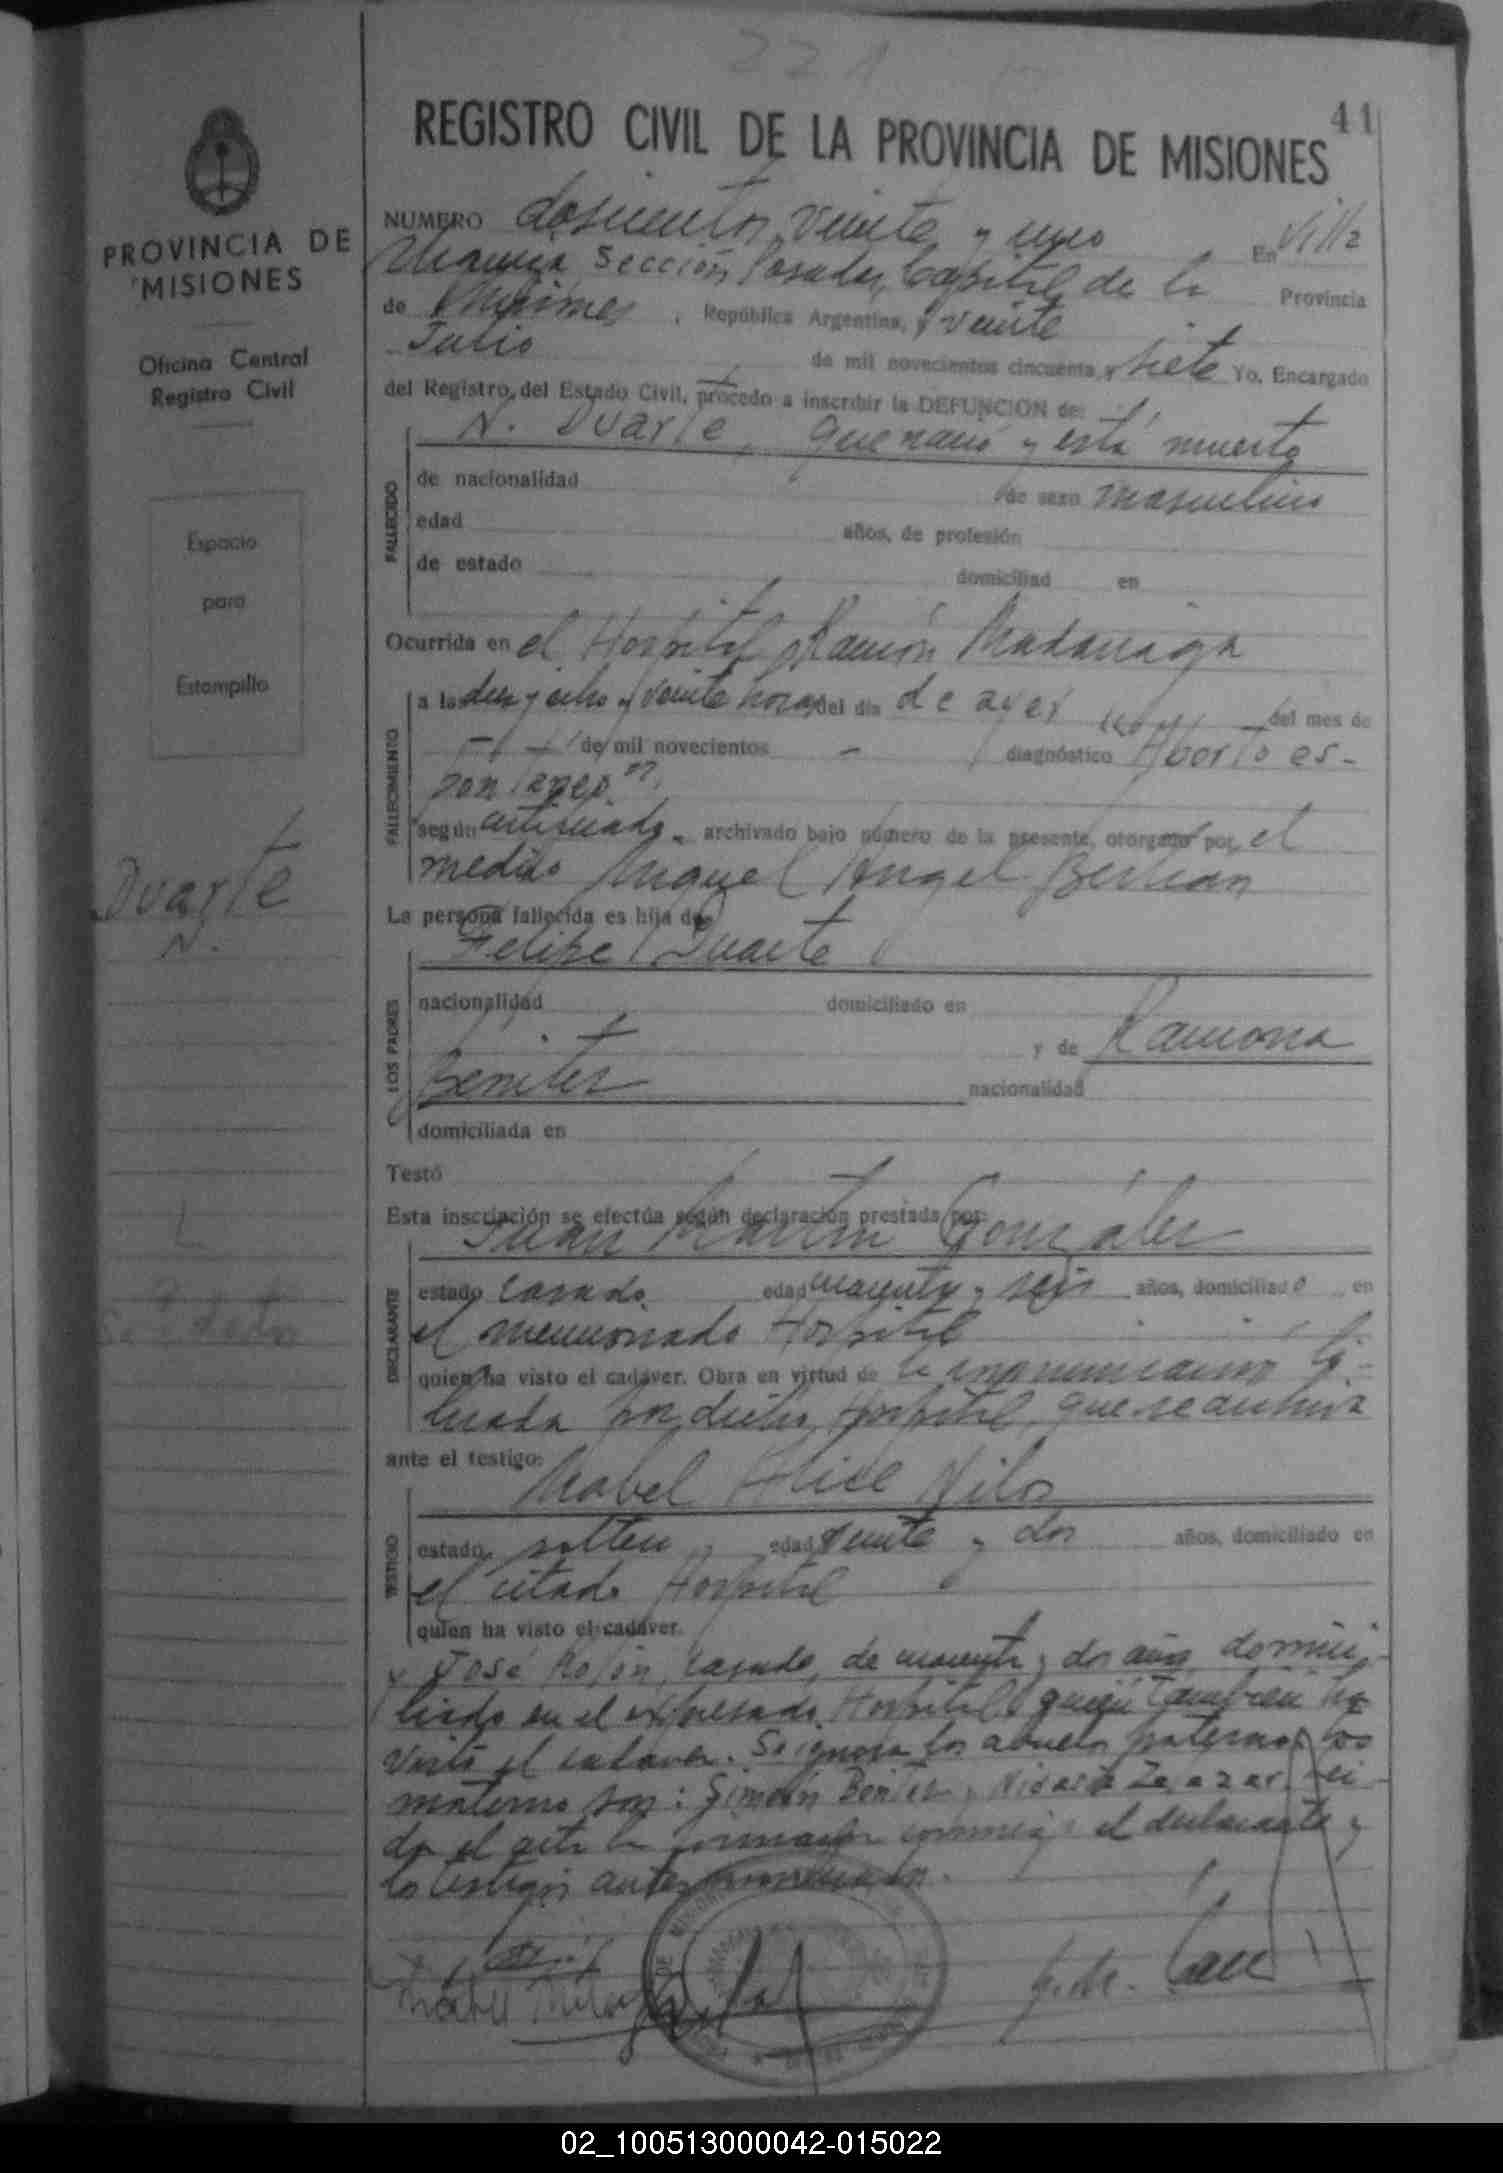 221
41
REGISTRO CIVIL DE LA PROVINCIA DE MISIONES
PROVINCIA DE
MISIONES
Oficina Central
Registro Civil
Espacio
para
Estampilla
Duarte
N.
NUMERO doscientos veinte y uno En Villa
Sección Posadas, Capital de la Provincia
de Misiones, República Argentina, a veinte
Julio de mil novecientos cincuenta y siete Yo, Encargado
del Registro del Estado Civil, procedo a inscribir la DEFUNCION de:
N. Duarte, que nació y está muerto
FALLECIDO
de nacionalidad de sexo masculino
edad años, de profesión
de estado domiciliad en
Ocurrida en el Hospital Ramón Madariaga
FALLECIMIENTO
a las diez y ocho y veinte horas del día de ayer del mes de
de mil novecientos - diagnóstico Aborto es-
pontaneo".
según certificado archivado bajo número de la presente, otorgado por el
medico Miguel Angel
La persona fallecida es hija de
LOS PADRES
Felipe Duarte
nacionalidad domiciliado en
y de Ramona
Benitez nacionalidad
domiciliada en
Testó
Esta inscripción se efectúa según declaración prestada por:
DECLARANTE
Juan Martín González
estado casado edad cuarenta y seis años, domiciliado en
el mencionado Hospital
quien ha visto el cadáver. Obra en virtud de la
por dicho Hospital, que se archiva
ante el testigo:
TESTIGO
Mabel Alice
estado soltera edad veinte y dos años, domiciliado en
el citado Hospital
quien ha visto el cadáver.
y José Rojón, casado, de cuarenta y dos años domici-
liado en el expresado Hospital quien también ha
visto el cadaver. Se ignora los abuelos paternos los
maternos son: Simeón Benitez y
do el acta la conmigo el declarante y
los testigos antes mencionados.
02_100513000042-015022